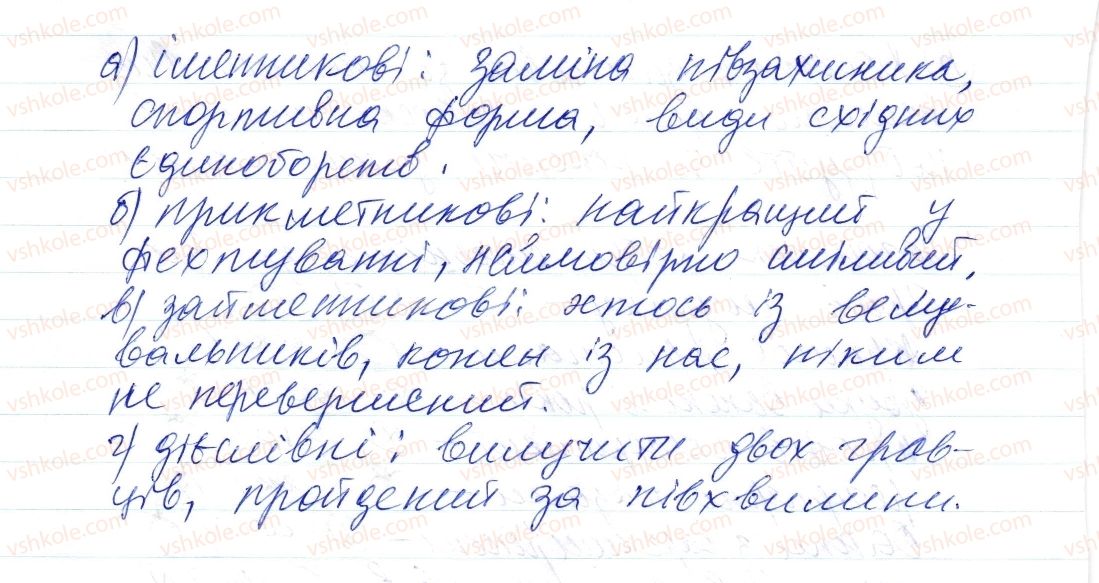 а) іменникові: заміна півзахисника,
спортивна форма, види східних
єдиноборств.
б) прикметникові: найкращий у
фехтуванні, неймовірно сміливий,
в) займенникові: хтось із веслу-
вальників, кожен із нас, ніким
не перевершений.
г) дієслівні: вилучити двох грав-
ців, пройдений за півхвилини.